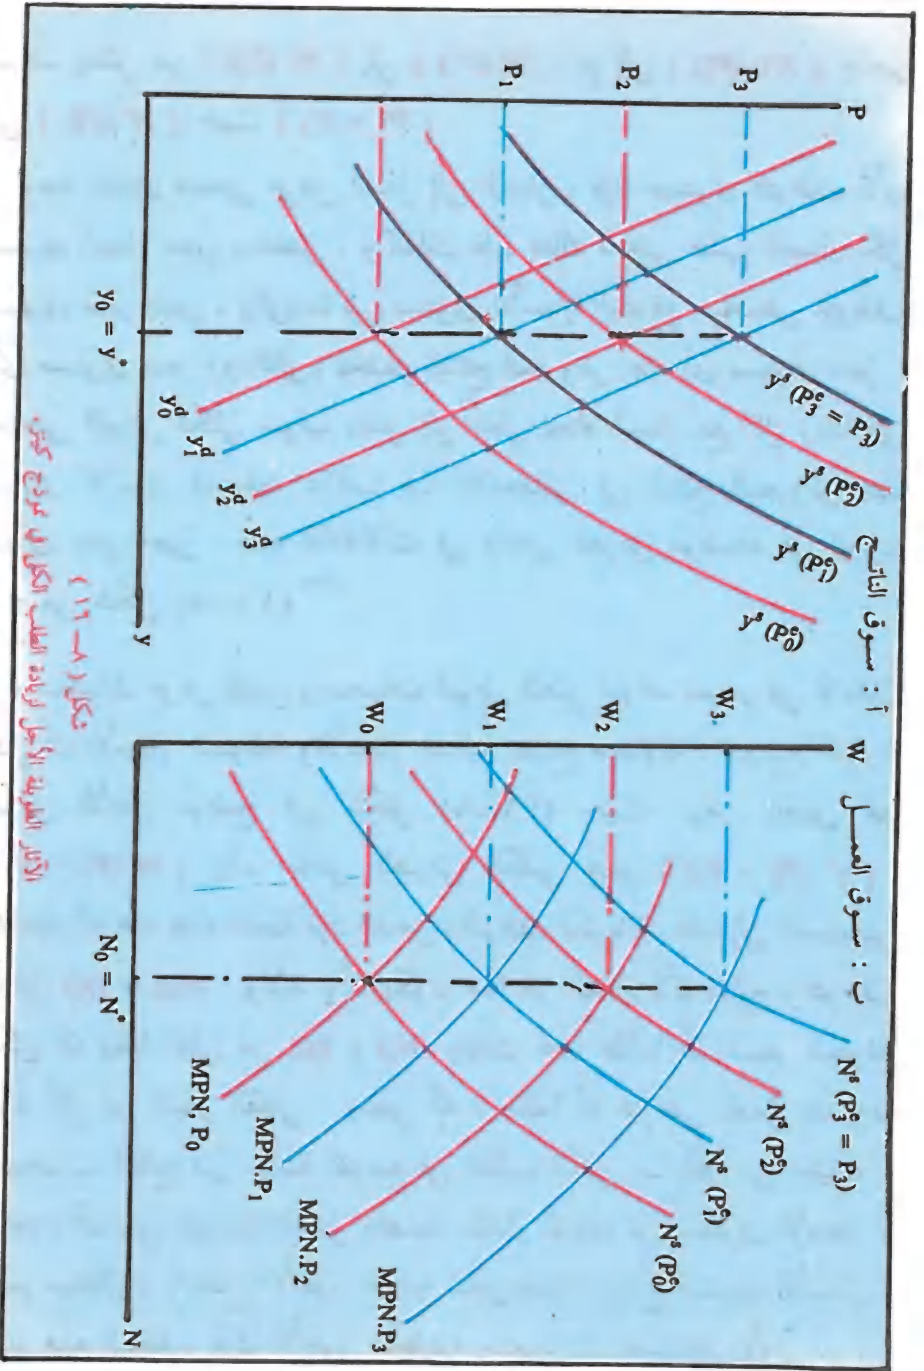 أ : سوق الناتج
P
P₃
P₂
P₁
yˢ (P₃ᵉ = P₃)
yˢ (P₂ᵉ)
yˢ (P₁ᵉ)
yˢ (P₀ᵉ)
y₀ᵈ
y₁ᵈ
y₂ᵈ
y₃ᵈ
y₀ = y*
y
ب : سوق العمـــل
W
W₃
W₂
W₁
W₀
Nˢ (P₃ᵉ = P₃)
Nˢ (P₂ᵉ)
Nˢ (P₁ᵉ)
Nˢ (P₀ᵉ)
MPN, P₀
MPN.P₁
MPN.P₂
MPN.P₃
N₀ = N*
N
شكل ( ٨ – ١٦ )
الآثار الطويلة الأجل لزيادة الطلب الكلي في نموذج كينز